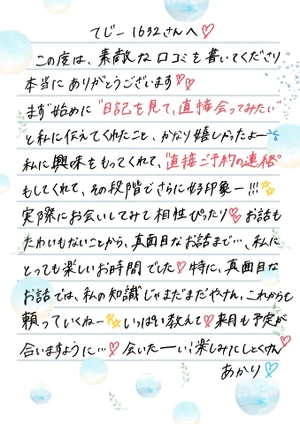 てじー1632さんへ♡
この度は、素敵な口コミを書いてくださり
本当にありがとうございます♡♡
まず始めに"日記を見て、直接会ってみたい"
と私に伝えてくれたこと、かなり嬉しかったよー
私に興味をもってくれて、"直接ご予約の連絡"
もしてくれて、その段階でさらに好印象ー!!!
実際にお会いしてみて相性ぴったり♡お話も
たわいもないことから、真面目なお話まで…、私に
とっても楽しいお時間でした♡特に、真面目な
お話では、私の知識じゃまだまだやけん、これからも
頼っていくねー いっぱい教えて♡来月も予定が
合いますように…♡会いたーい!楽しみにしとくけん
あかり♡